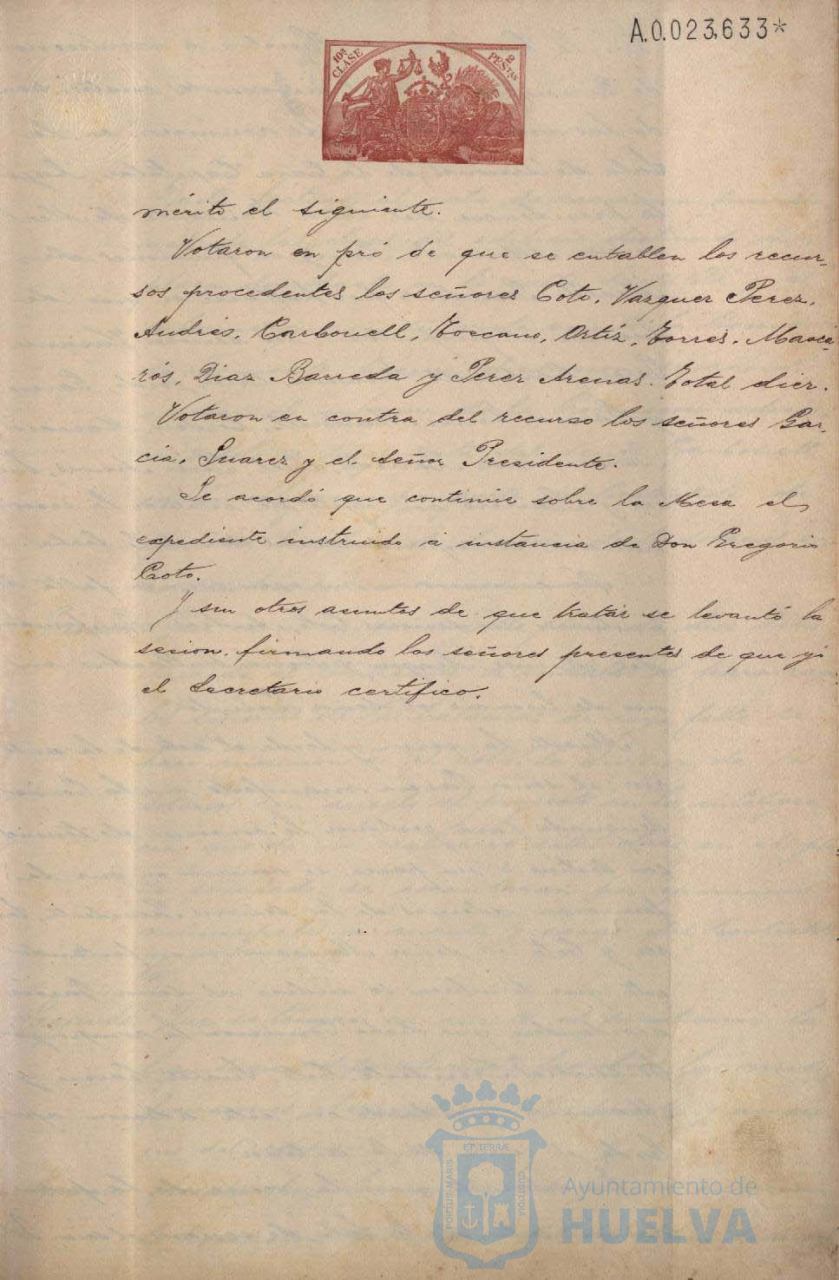 A.0.023,633*
10ª CLASE
2 PESTAS
mérito el siguiente.
Votaron en pró de que se entablen los recur-
sos procedentes los señores Coto, Vazquez Perez,
Andrés, Carbonell, Toscano, Ortiz, Torres, Masca-
rós, Diaz Barreda y Perez Arenas. Total diez.
Votaron en contra del recurso los señores Gar-
cia, Suarez y el señor Presidente.
Se acordó que continúe sobre la Mesa el
expediente instruido á instancia de Don Gregorio
Coto.
Y sin otros asuntos de que tratar se levantó la
sesion, firmando los señores presentes de que yó
el Secretario certifico.
PORTUS MARIS
ET TERRÆ
CUSTODIA
Ayuntamiento de
HUELVA